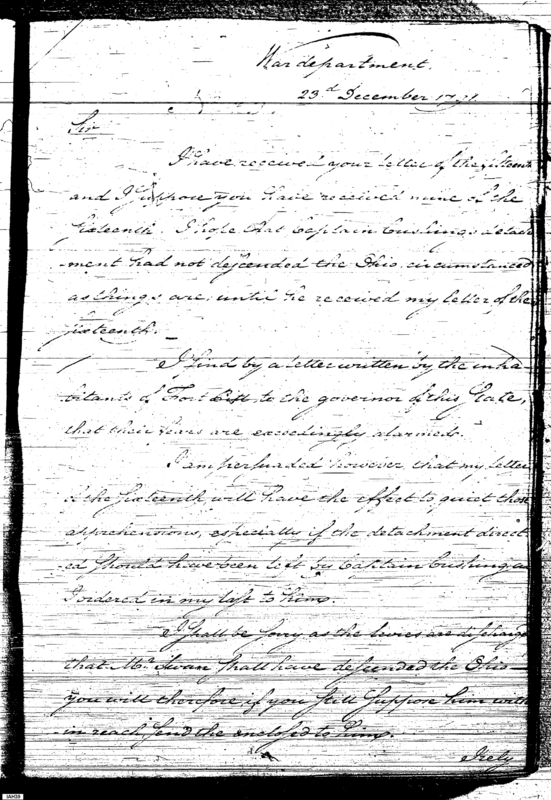 War department.
23.d December 1791.
Sir
I have received your letter of the fifteenth
and I suppose you have received mine of the
sixteenth. I hope that Captain Cushings detach
ment had not descended the Ohio, circumstanced
as things are, until he received my letter of the
sixteenth.
I find by a letter written by the inha-
bitants of Fort Pitt, to the governor of this State,
that their fears are exceedingly alarmed.
I am persuaded however that my letter
of the sixteenth will have the effect to quiet those
apprehensions, especially if the detachment direct
ed should have been left by Captain Cushing as
I ordered in my last to him.
I shall be sorry as the levies are discharged
that Mr. Swan shall have descended the Ohio
you will therefore if you still suppose him with
in reach, send the enclosed to him.
I rely
IAH39